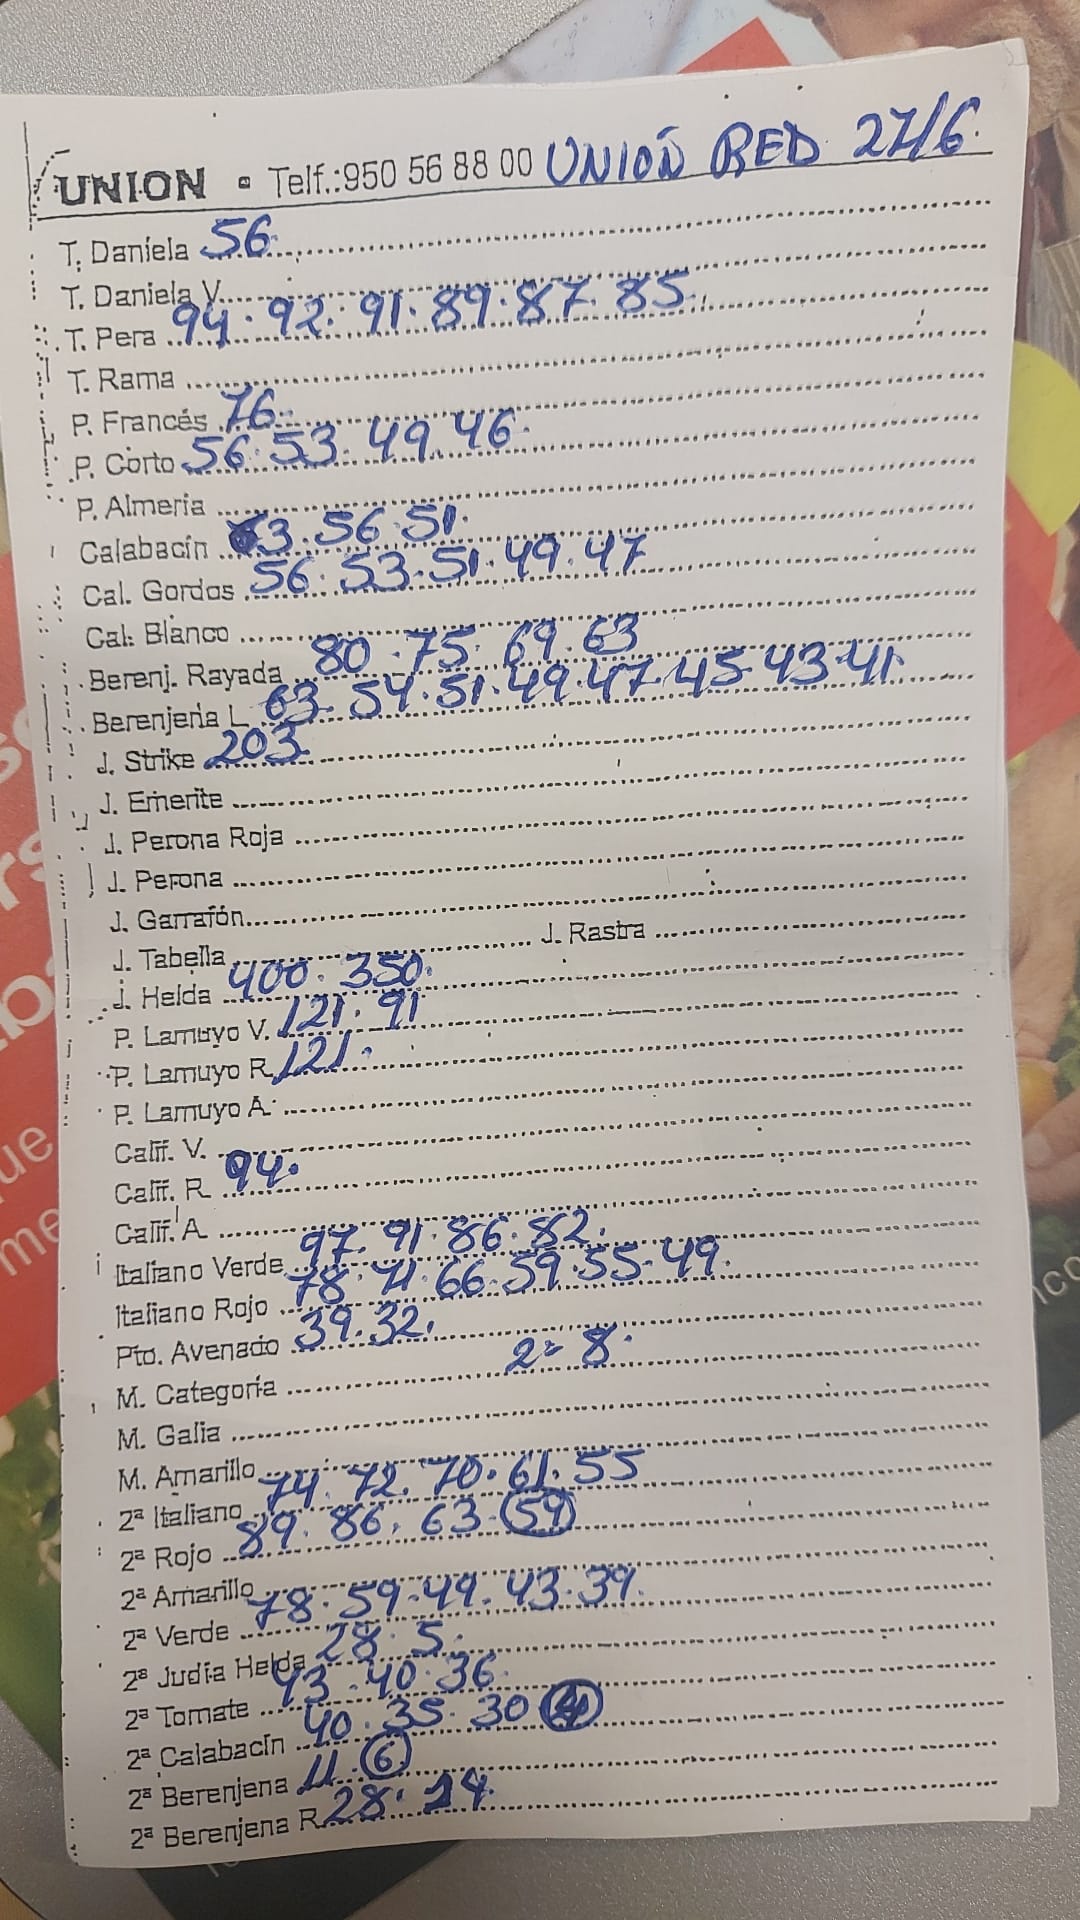 UNION • Telf.:950 56 88 00 UNIÓN RED 27/6.
T. Daniela 56.
T. Daniela V.
T. Pera 94. 92. 91. 89. 87. 85.
T. Rama
P. Francés 76.
P. Corto 56. 53. 49. 46.
P. Almería
Calabacín 63. 56. 51.
Cal. Gordos 56. 53. 51. 49. 47
Cal. Blanco
Berenj. Rayada 80. 75. 69. 63
Berenjena L. 63. 54. 51. 49. 47. 45. 43. 41.
J. Strike 203.
J. Emerite
J. Perona Roja
J. Perona
J. Garrafón
J. Tabella J. Rastra
J. Helda 400. 350.
P. Lamuyo V. 121. 91
P. Lamuyo R. 121.
P. Lamuyo A.
Calif. V.
Calif. R. 94.
Calif. A.
Italiano Verde 97. 91. 86. 82.
Italiano Rojo 78. 71. 66. 59. 55. 49.
Pto. Avenado 39. 32.
M. Categoría 2= 8.
M. Galia
M. Amarillo
2ª Italiano 74. 72. 70. 61. 55
2ª Rojo 89. 86. 63. 59
2ª Amarillo
2ª Verde 78. 59. 49. 43. 39.
2ª Judía Helda 28. 5.
2ª Tomate 43. 40. 36.
2ª Calabacín 40. 35. 30
2ª Berenjena 11. 6
2ª Berenjena R. 28. 24.